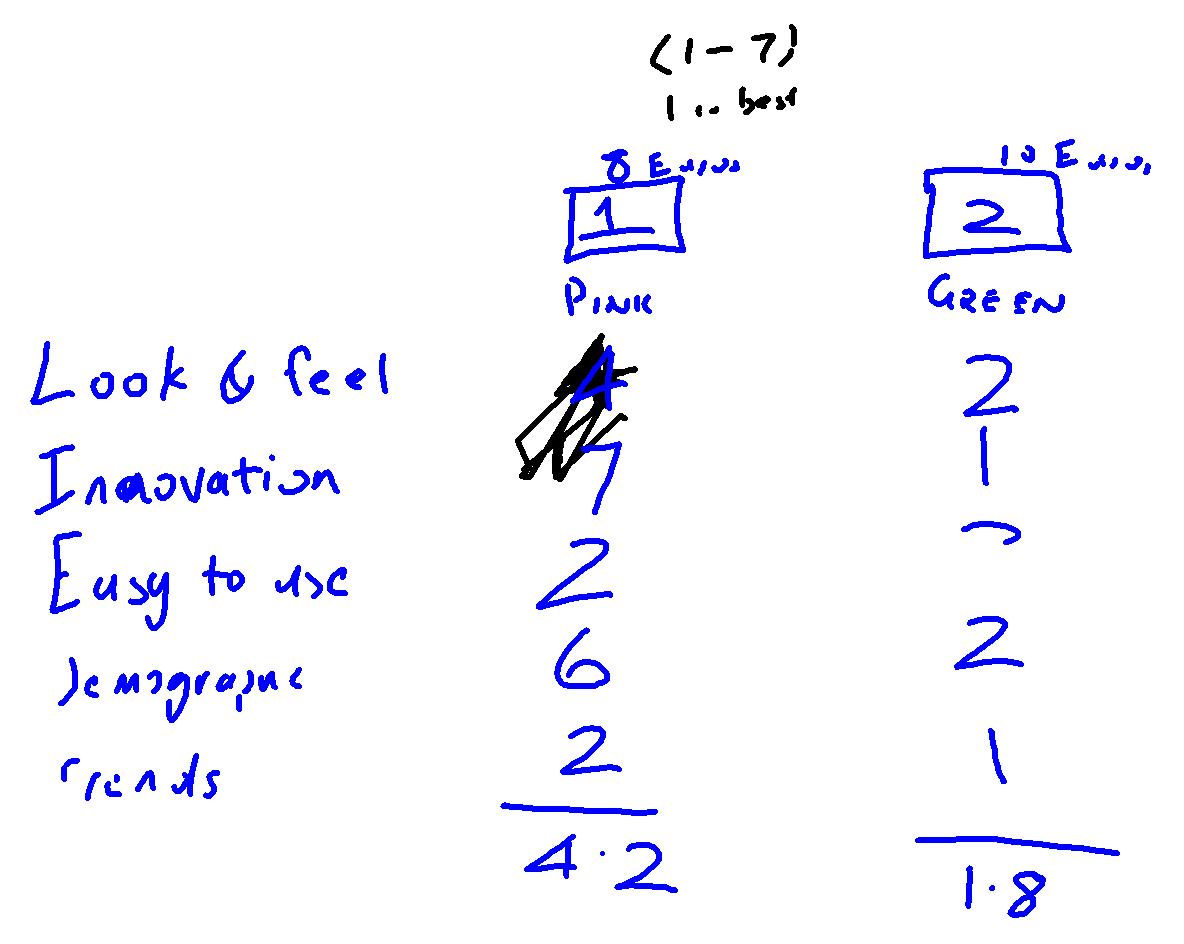 (1-7)
1 is best
8 Euros 10 Euros
1 2
PINK GREEN
Look & feel 4 2
Innovation 7 1
Easy to use 2
Demographic 6 2
Trends 2 1
4.2 1.8